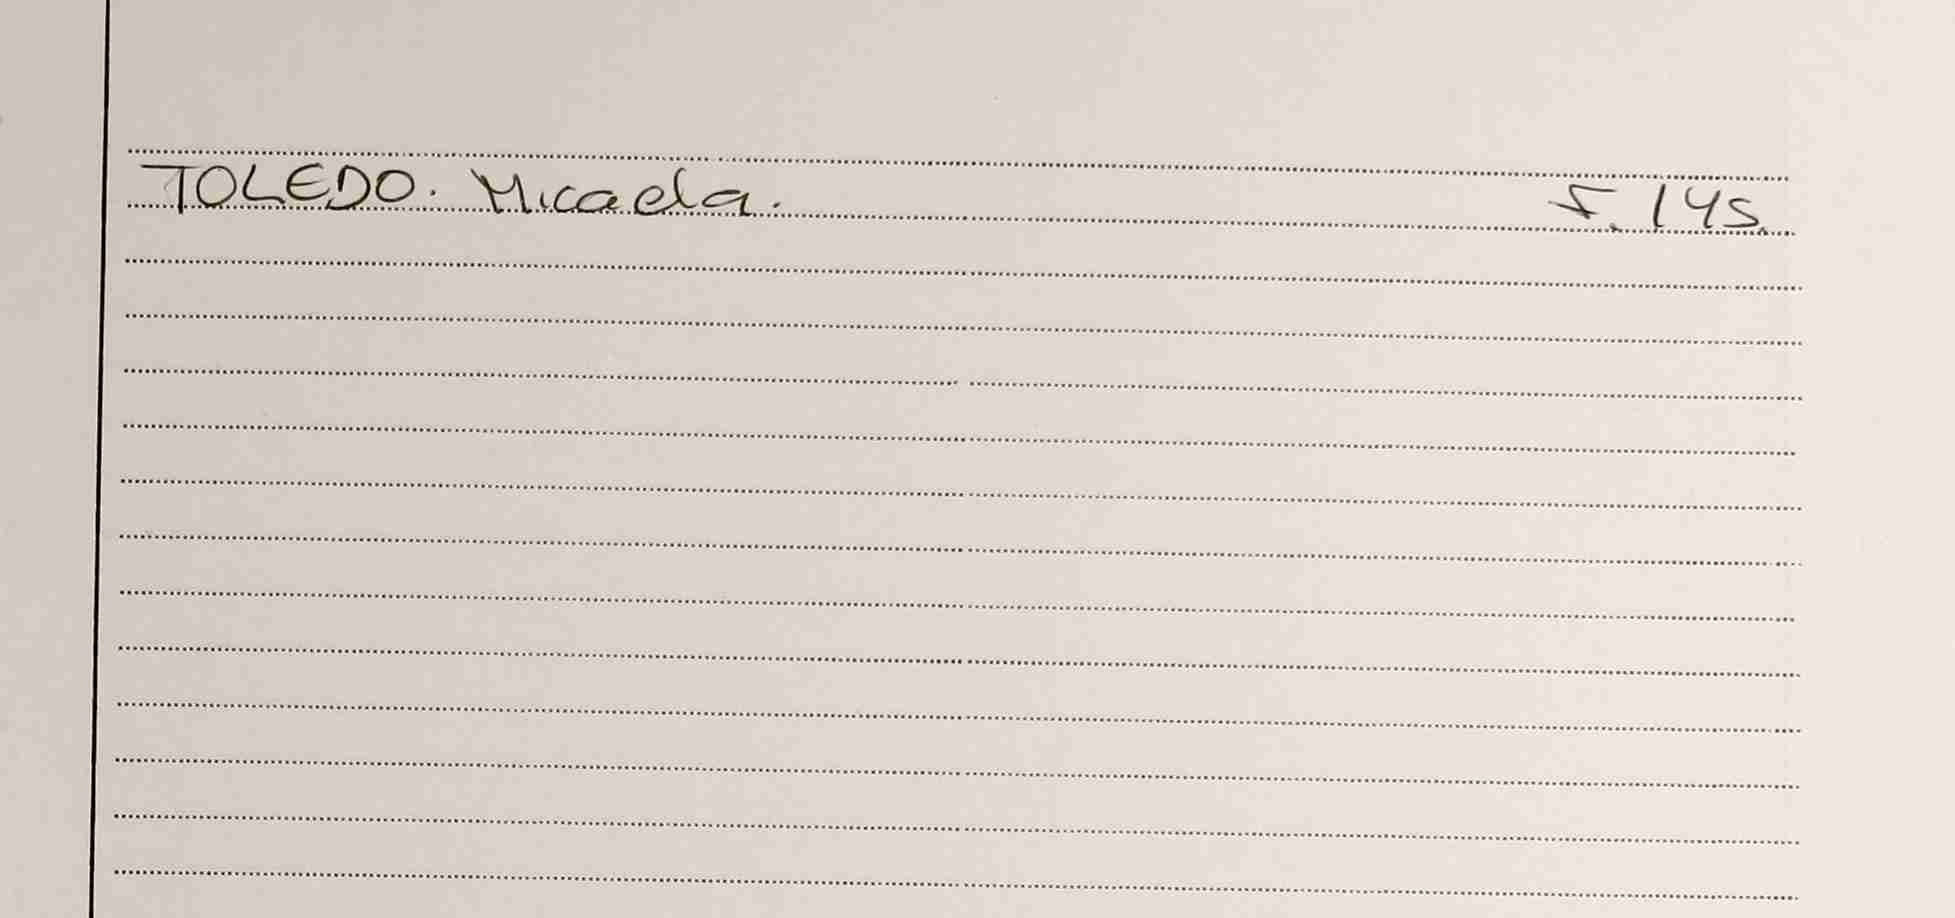 TOLEDO. Micaela. F. 145.